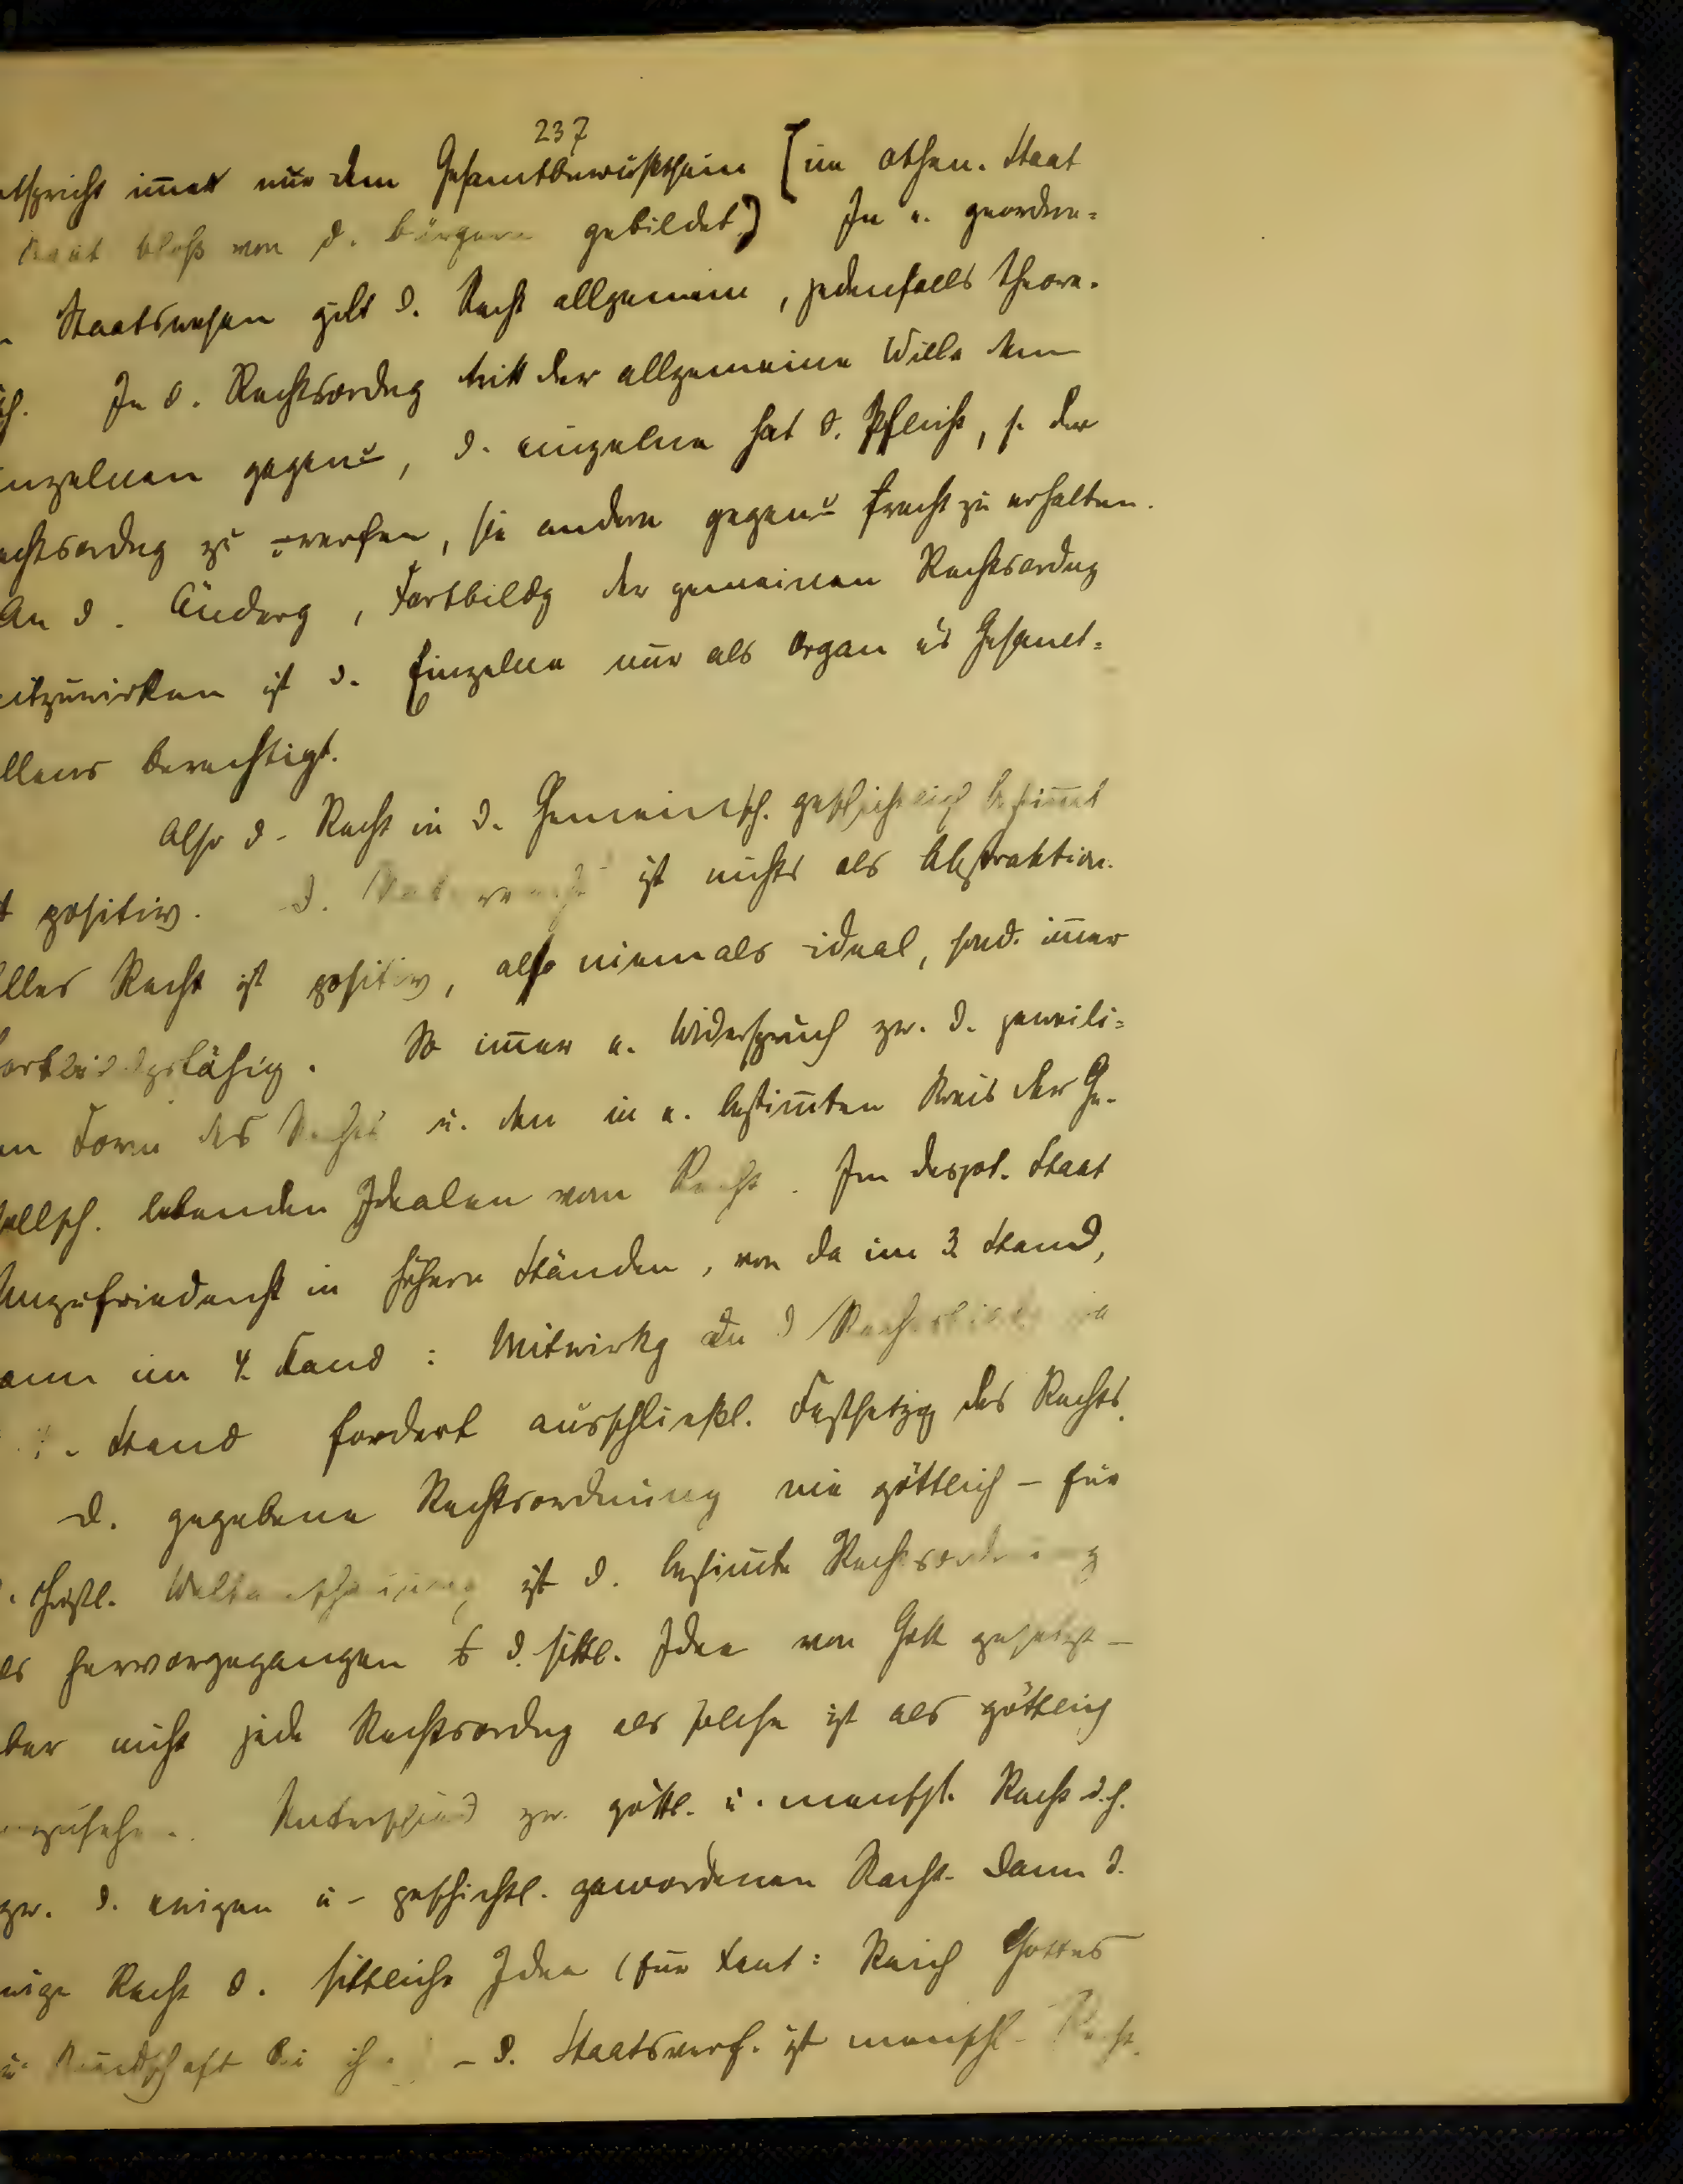 237
entspricht immer nur dem Gesamtbewußtsein [im athen. Staat
bloß von d. Bürgern gebildet] In e. geordne-
Staatswesen gilt d. Recht allgemein, jedenfalls theore-
In d. Rechtsordng tritt der allgemeine Wille dem
inzelnen gegenü, d. einzelne hat d. Pflicht, s. der
echtsordng zu werfen, sie andern gegenü frecht zu erhalten.
An d. Änderg, Fortbildg der gemeinen Rechtsordng
itzuwirken ist d. Einzelne nur als Organ des Gesamt-
llens berechtigt.
Also d. Recht in d. Gemeinsch. geschichtlich bestimt
t positiv. d. Naturrecht ist nichts als Abstraktion.
lles Recht ist positiv, also niemals ideal, sond. immer
ortbildgsfähig. So immer e. Widerspruch zw. d. jeweili-
en Form des Rechts u. den in e. bestimten Kreis der Ge-
sellsch. lebenden Idealen vom Recht. Im despot. Staat
Unzufriedenht in höhern Ständen, von da im 3. Stand,
ann im 4. Stand: Mitwirkg an d
Stand fordert ausschließl. Festsetzg des Rechts.
D. gegebene Rechtsordnung nie göttlich – für
christl. Weltanschauung ist d. bestimte Rechtsordnung
als hervorgegangen d. sittl. Idee von Gott gesetzt –
ber nicht jede Rechtsordng als solche ist als göttlich
nzusehn. Unterschied zw. göttl. u. menschl. Recht d.h.
zw. d. ewigen u. geschichtl. gewordenen Recht. Dann d.
wige Recht d. sittliche Idee (für Kant: Reich Gottes
u. – d. Staatsverf. ist menschl. Recht.